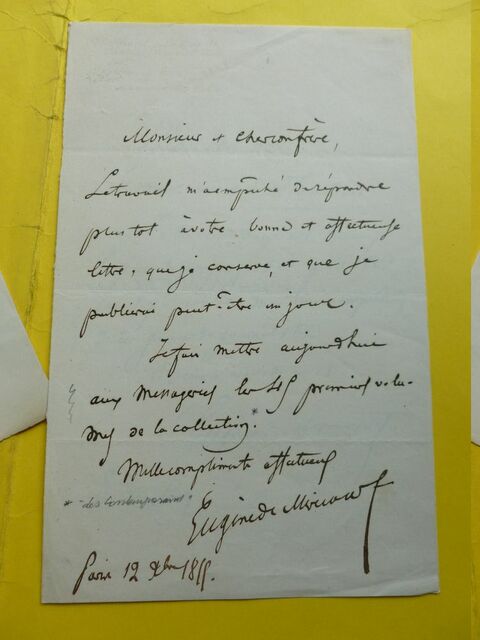 Monsieur et cher confrère,
Le travail m'a empêché de répondre
plus tôt à votre bonne et affectueuse
lettre, que je conserve, et que je
publierai peut-être un jour.
Je fais mettre aujourd'hui
aux Messageries les premiers volu-
mes de la collection.*
Mille compliments affectueux
* "des Contemporains"
Eugène de Mirecourt
Paris 12 Xbre